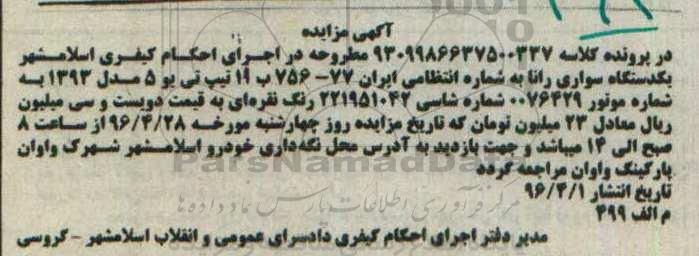 آگهی مزایده
در پرونده کلاسه ۹۳۰۹۹۸۶۶۳۷۵۰۰۳۳۷ مطروحه در اجرای احکام کیفری اسلامشهر
یکدستگاه سواری رانا به شماره انتظامی ایران ۷۷- ۷۵۶ ب ۱۹ تیپ تی یو ۵ مدل ۱۳۹۳ به
شماره موتور ۰۰۷۶۴۲۹ شماره شاسی ۲۲۱۹۵۱۰۴۲ رنگ نقره‌ای به قیمت دویست و سی میلیون
ریال معادل ۲۳ میلیون تومان که تاریخ مزایده روز چهارشنبه مورخه ۹۶/۴/۲۸ از ساعت ۸
صبح الی ۱۴ میباشد و جهت بازدید به آدرس محل نگه‌داری خودرو اسلامشهر شهرک واوان
پارکینگ واوان مراجعه گردد
تاریخ انتشار ۹۶/۴/۱
م الف ۴۹۹
مدیر دفتر اجرای احکام کیفری دادسرای عمومی و انقلاب اسلامشهر - گروسی
ParsNamadData
مرکز فرآوری اطلاعات پارس نماد داده‌ها